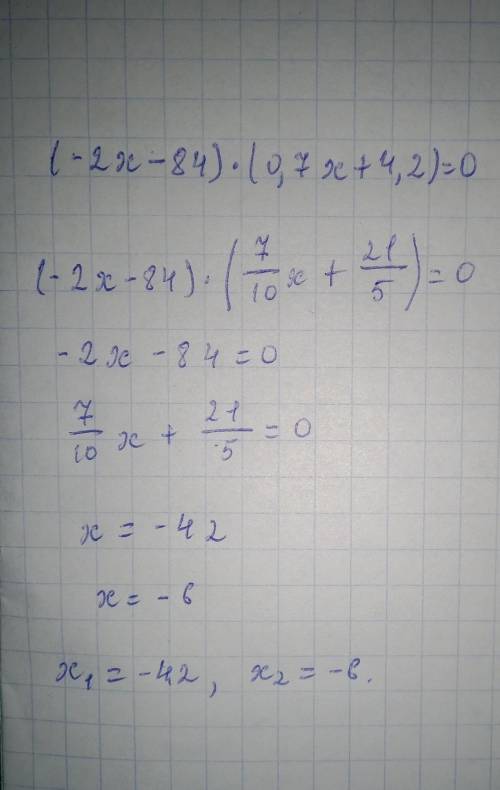 (-2x-84)·(0,7x+4,2)=0
(-2x-84)·(7/10 x + 21/5)=0
-2x-84=0
7/10 x + 21/5 = 0
x = -42
x = -6
x₁ = -42, x₂ = -6.